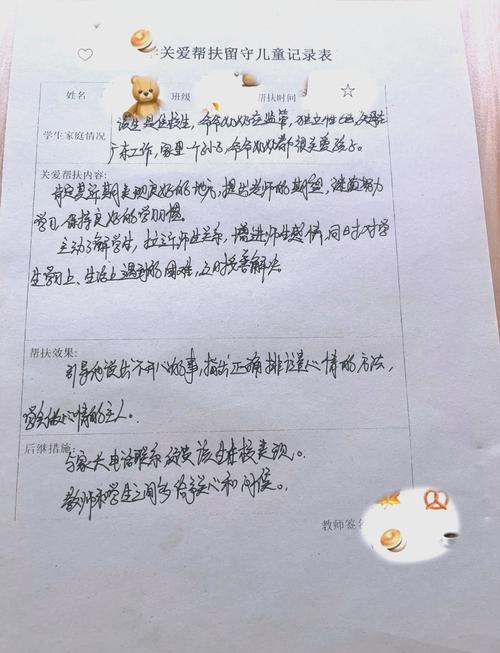 关爱帮扶留守儿童记录表
姓名 班级 帮扶时间
学生家庭情况
该生是住校生,爷爷奶奶在监管,独立性
广东工作,家里一个小孩,爷爷奶奶都很关爱孩子。
关爱帮扶内容:
肯定其近期表现良好的地方,提出老师的期望,鼓励努力
学习,保持良好的学习习惯。
主动了解学生,拉近师生关系,增进师生感情,同时对学
生学习上、生活上遇到的困难,及时妥善解决。
帮扶效果:
引导他说出不开心的事,指出正确排遣心情的方法,
学会做心情的主人。
后继措施:
与家长电话联系 反馈该生在校表现。
教师和学生之间多给予关心和问候。
教师签